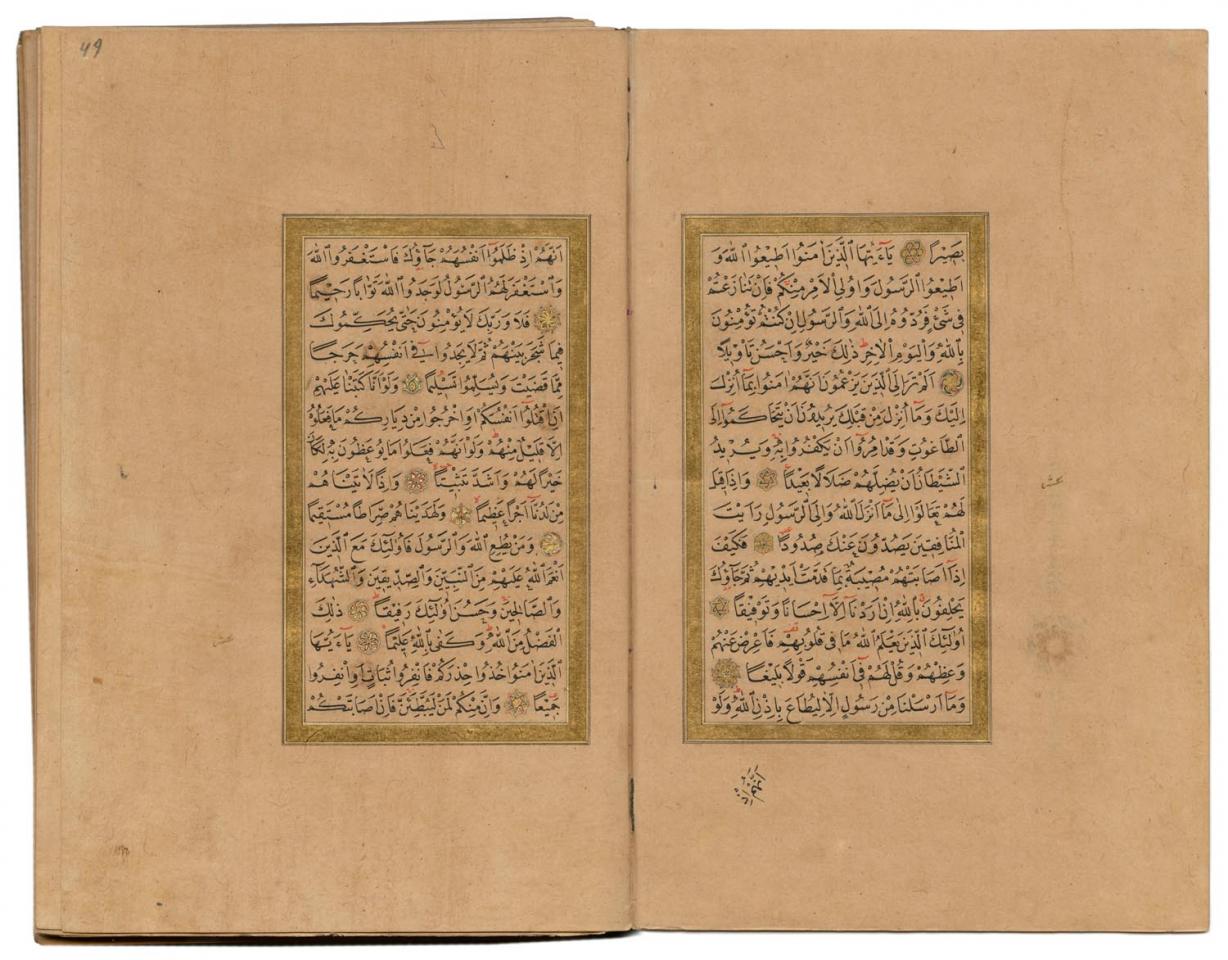 بَصِيرًا يَٓاءَيُّهَا الَّذِينَ اٰمَنُوا اَطِيعُوا اللّٰهَ وَ
اَطِيعُوا الرَّسُولَ وَاُولِى الْاَمْرِ مِنْكُمْ فَاِنْ تَنَازَعْتُمْ
فِى شَىْءٍ فَرُدُّوهُ اِلَى اللّٰهِ وَالرَّسُولِ اِنْ كُنْتُمْ تُؤْمِنُونَ
بِاللّٰهِ وَالْيَوْمِ الْاٰخِرِ ذٰلِكَ خَيْرٌ وَاَحْسَنُ تَاْوِيلًا
اَلَمْ تَرَ اِلَى الَّذِينَ يَزْعُمُونَ اَنَّهُمْ اٰمَنُوا بِمَٓا اُنْزِلَ
اِلَيْكَ وَمَٓا اُنْزِلَ مِنْ قَبْلِكَ يُرِيدُونَ اَنْ يَتَحَاكَمُٓوا اِلَى
الطَّاغُوتِ وَقَدْ اُمِرُٓوا اَنْ يَكْفُرُوا بِهِ وَيُرِيدُ
الشَّيْطَانُ اَنْ يُضِلَّهُمْ ضَلَالًا بَعِيدًا وَاِذَا قِيلَ
لَهُمْ تَعَالَوْا اِلٰى مَٓا اَنْزَلَ اللّٰهُ وَاِلَى الرَّسُولِ رَاَيْتَ
الْمُنَافِقِينَ يَصُدُّونَ عَنْكَ صُدُودًا فَكَيْفَ
اِذَٓا اَصَابَتْهُمْ مُصِيبَةٌ بِمَا قَدَّمَتْ اَيْدِيهِمْ ثُمَّ جَٓاؤُكَ
يَحْلِفُونَ بِاللّٰهِ اِنْ اَرَدْنَٓا اِلَّٓا اِحْسَانًا وَتَوْفِيقًا
اُولٰٓئِكَ الَّذِينَ يَعْلَمُ اللّٰهُ مَا فِى قُلُوبِهِمْ فَاَعْرِضْ عَنْهُمْ
وَعِظْهُمْ وَقُلْ لَهُمْ فِٓى اَنْفُسِهِمْ قَوْلًا بَلِيغًا
وَمَٓا اَرْسَلْنَا مِنْ رَسُولٍ اِلَّا لِيُطَاعَ بِاِذْنِ اللّٰهِ وَلَوْ
اَنَّهُمْ اِذْ
۴۹
اَنَّهُمْ اِذْ ظَلَمُٓوا اَنْفُسَهُمْ جَٓاؤُكَ فَاسْتَغْفَرُوا اللّٰهَ
وَاسْتَغْفَرَ لَهُمُ الرَّسُولُ لَوَجَدُوا اللّٰهَ تَوَّابًا رَحِيمًا
فَلَا وَرَبِّكَ لَا يُؤْمِنُونَ حَتّٰى يُحَكِّمُوكَ
فِيمَا شَجَرَ بَيْنَهُمْ ثُمَّ لَا يَجِدُوا فِٓى اَنْفُسِهِمْ حَرَجًا
مِمَّا قَضَيْتَ وَيُسَلِّمُوا تَسْلِيمًا وَلَوْ اَنَّا كَتَبْنَا عَلَيْهِمْ
اَنِ اقْتُلُٓوا اَنْفُسَكُمْ اَوِ اخْرُجُوا مِنْ دِيَارِكُمْ مَا فَعَلُوهُ
اِلَّا قَلِيلٌ مِنْهُمْ وَلَوْ اَنَّهُمْ فَعَلُوا مَا يُوعَظُونَ بِهِ لَكَانَ
خَيْرًا لَهُمْ وَاَشَدَّ تَثْبِيتًا وَاِذًا لَاٰتَيْنَاهُمْ
مِنْ لَدُنَّٓا اَجْرًا عَظِيمًا وَلَهَدَيْنَاهُمْ صِرَاطًا مُسْتَقِيمًا
وَمَنْ يُطِعِ اللّٰهَ وَالرَّسُولَ فَاُولٰٓئِكَ مَعَ الَّذِينَ
اَنْعَمَ اللّٰهُ عَلَيْهِمْ مِنَ النَّبِيِّينَ وَالصِّدِّيقِينَ وَالشُّهَدَٓاءِ
وَالصَّالِحِينَ وَحَسُنَ اُولٰٓئِكَ رَفِيقًا ذٰلِكَ
الْفَضْلُ مِنَ اللّٰهِ وَكَفٰى بِاللّٰهِ عَلِيمًا يَٓاءَيُّهَا
الَّذِينَ اٰمَنُوا خُذُوا حِذْرَكُمْ فَانْفِرُوا ثُبَاتٍ اَوِ انْفِرُوا
جَمِيعًا وَاِنَّ مِنْكُمْ لَمَنْ لَيُبَطِّئَنَّ فَاِنْ اَصَابَتْكُمْ